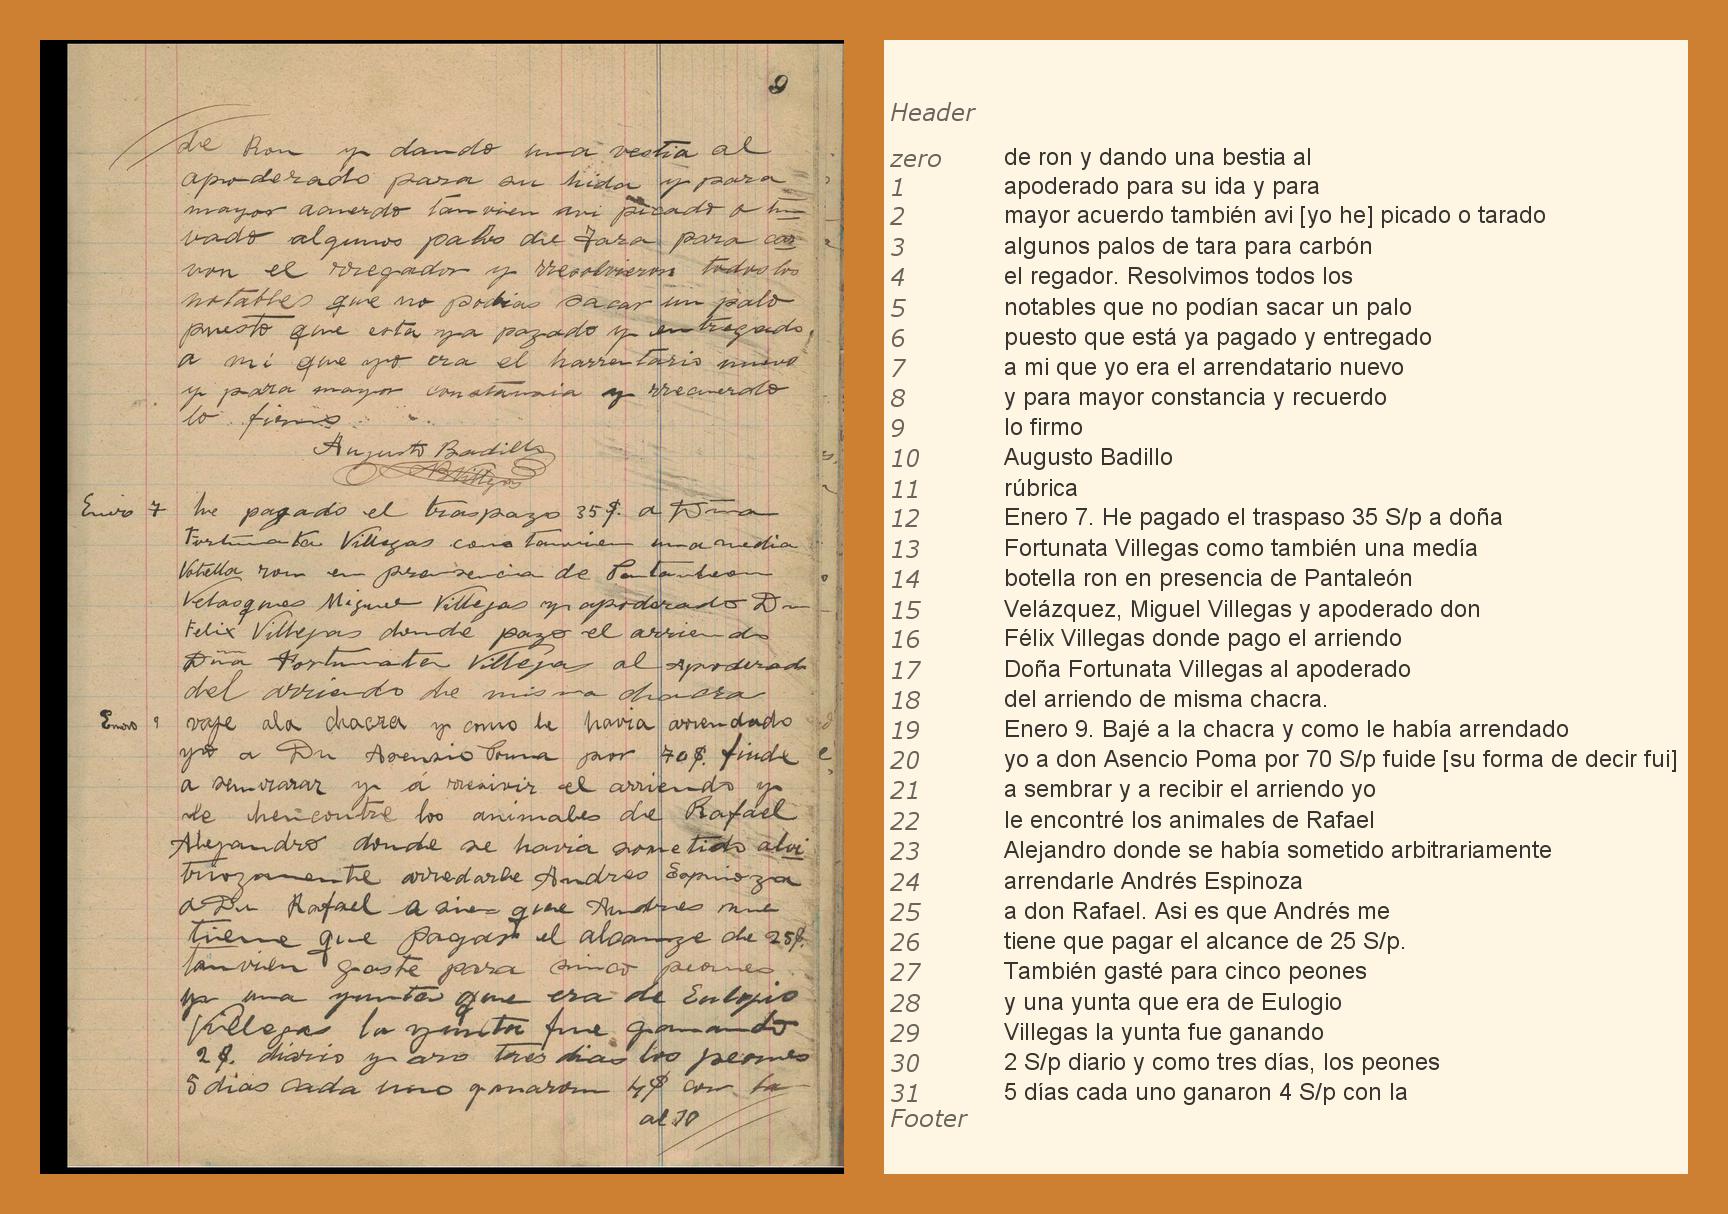 9
de Ron y dando una vestia al
apoderado para su hida y para
mayor acuerdo tanvien avi picado o tu
vado algunos palos de Tara para car
von el rregador y rresolvieron todos los
notables que no podias sacar un palo
puesto que esta ya pagado y entregado
a mi que yo era el harrentario nuevo
y para mayor constancia y rrecuerdo
lo firmo
Augusto Badillo
Enero 7 he pagado el traspazo 35 $. a Dña
Fortunata Villegas como tanvien una media
Votella ron en presencia de Pantaleon
Velasques Miguel Villegas y apoderado Dn
Felix Villegas donde pago el arriendo
Dña Fortunata Villegas al Apoderado
del arriendo de misma chacra
Enero 9 vaje ala chacra y como le havia arrendado
yo a Dn Asensio Poma por 70 $. fuide
a semvrar y á rresivir el arriendo y
le hencontre los animales de Rafael
Alejandro donde se havia sometido alvi
triozamente arredarle Andres Espinoza
a Dn Rafael a sies que Andres me
tiene que pagar el alcanze de 25 $.
tanvien gaste para sinco peones
y una yunta que era de Eulogio
Villegas la yunta fue ganando
2 $. diario y aro tres dias los peones
5 dias cada uno ganaron 4 $ con la
al 10
Header
zero de ron y dando una bestia al
1 apoderado para su ida y para
2 mayor acuerdo también avi [yo he] picado o tarado
3 algunos palos de tara para carbón
4 el regador. Resolvimos todos los
5 notables que no podían sacar un palo
6 puesto que está ya pagado y entregado
7 a mi que yo era el arrendatario nuevo
8 y para mayor constancia y recuerdo
9 lo firmo
10 Augusto Badillo
11 rúbrica
12 Enero 7. He pagado el traspaso 35 S/p a doña
13 Fortunata Villegas como también una medía
14 botella ron en presencia de Pantaleón
15 Velázquez, Miguel Villegas y apoderado don
16 Félix Villegas donde pago el arriendo
17 Doña Fortunata Villegas al apoderado
18 del arriendo de misma chacra.
19 Enero 9. Bajé a la chacra y como le había arrendado
20 yo a don Asencio Poma por 70 S/p fuide [su forma de decir fui]
21 a sembrar y a recibir el arriendo yo
22 le encontré los animales de Rafael
23 Alejandro donde se había sometido arbitrariamente
24 arrendarle Andrés Espinoza
25 a don Rafael. Asi es que Andrés me
26 tiene que pagar el alcance de 25 S/p.
27 También gasté para cinco peones
28 y una yunta que era de Eulogio
29 Villegas la yunta fue ganando
30 2 S/p diario y como tres días, los peones
31 5 días cada uno ganaron 4 S/p con la
Footer